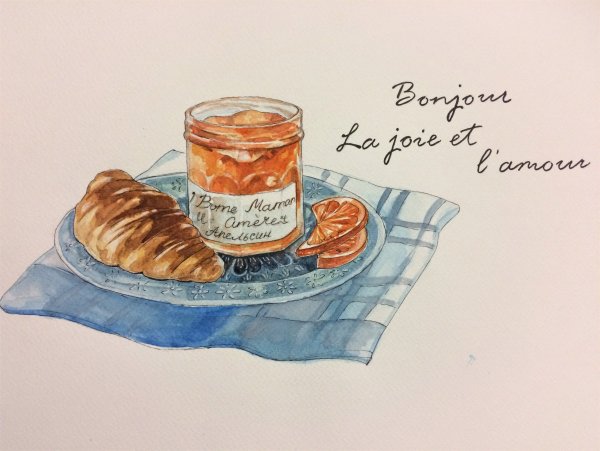 Bonjour
La joie et
l'amour
Bome Maman
Amères
Апельсин